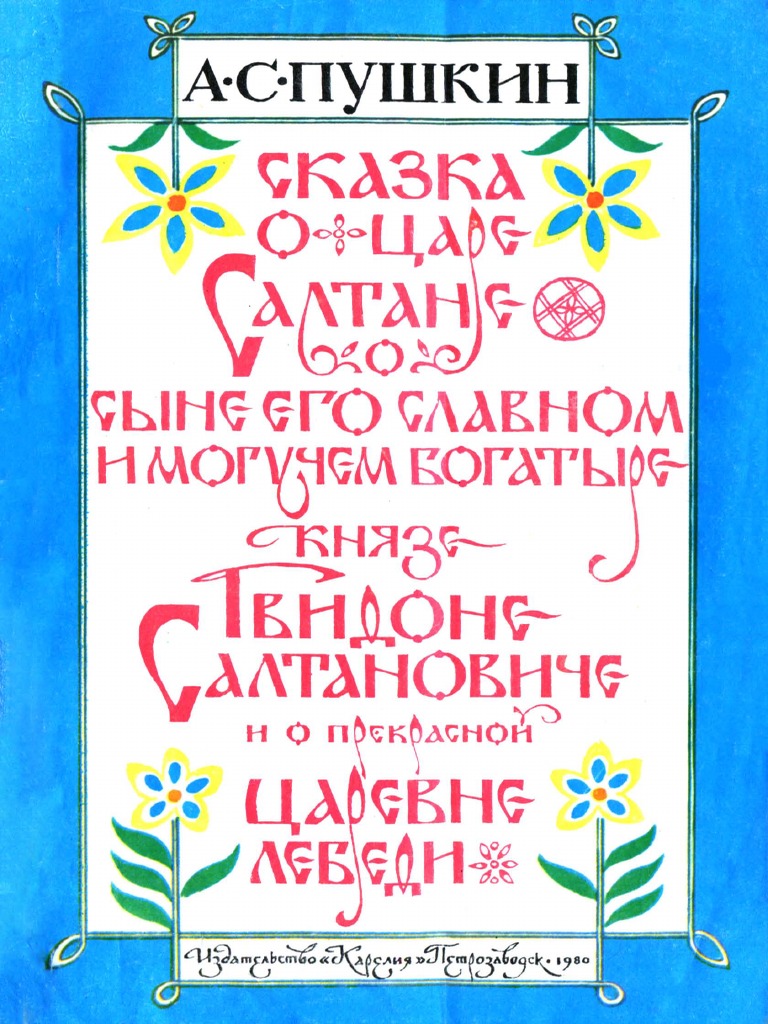 А·С·ПУШКИН
СКАЗКА
О ЦАРЕ
САЛТАНЕ
О
СЫНЕ ЕГО СЛАВНОМ
И МОГУЧЕМ БОГАТЫРЕ
КНЯЗЕ
ГВИДОНЕ
САЛТАНОВИЧЕ
И О ПРЕКРАСНОЙ
ЦАРЕВНЕ
ЛЕБЕДИ
Издательство «Карелия» Петрозаводск · 1980